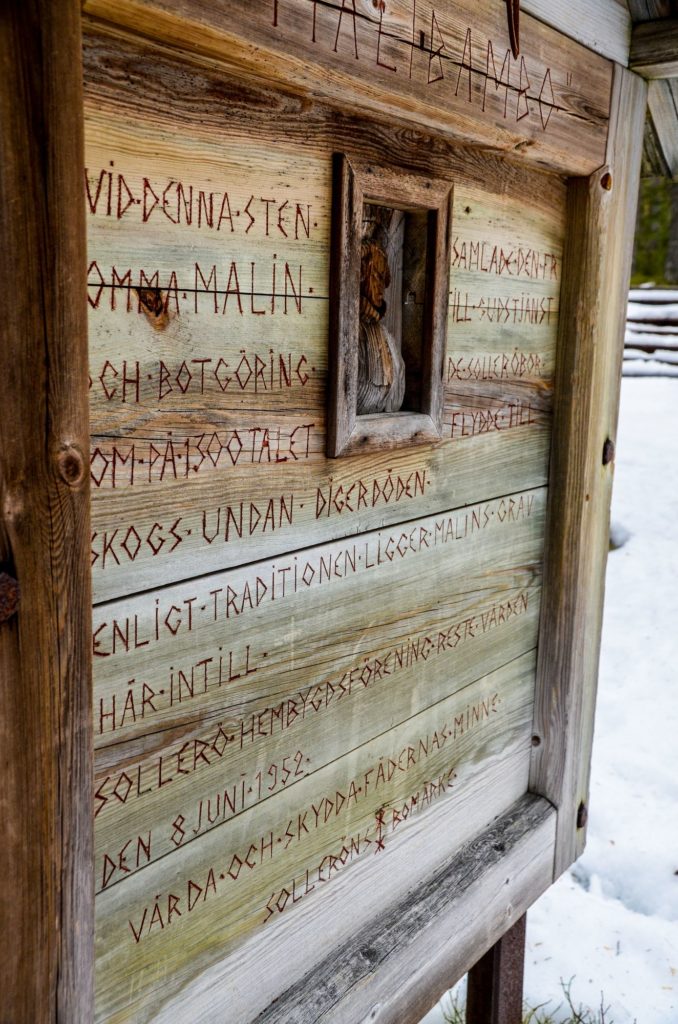 ALI·BAMBO"
VID·DENNA·STEN· SAMLADE·DEN·FR
OMMA·MALIN· TILL·GUDSTJÄNST
OCH·BOTGÖRING· DE·SOLLERÖBOR·
SOM·PÅ·1500TALET FLYDDE·TILL
SKOGS·UNDAN·DIGERDÖDEN·
ENLIGT·TRADITIONEN·LIGGER·MALINS·GRAV
HÄR·INTILL·
SOLLERÖ·HEMBYGDSFÖRENING·RESTE·VÅRDEN
DEN·8JUNI·1952·
VÅRDA·OCH·SKYDDA·FÄDERNAS·MINNE·
SOLLERÖNS BOMÄRKE·